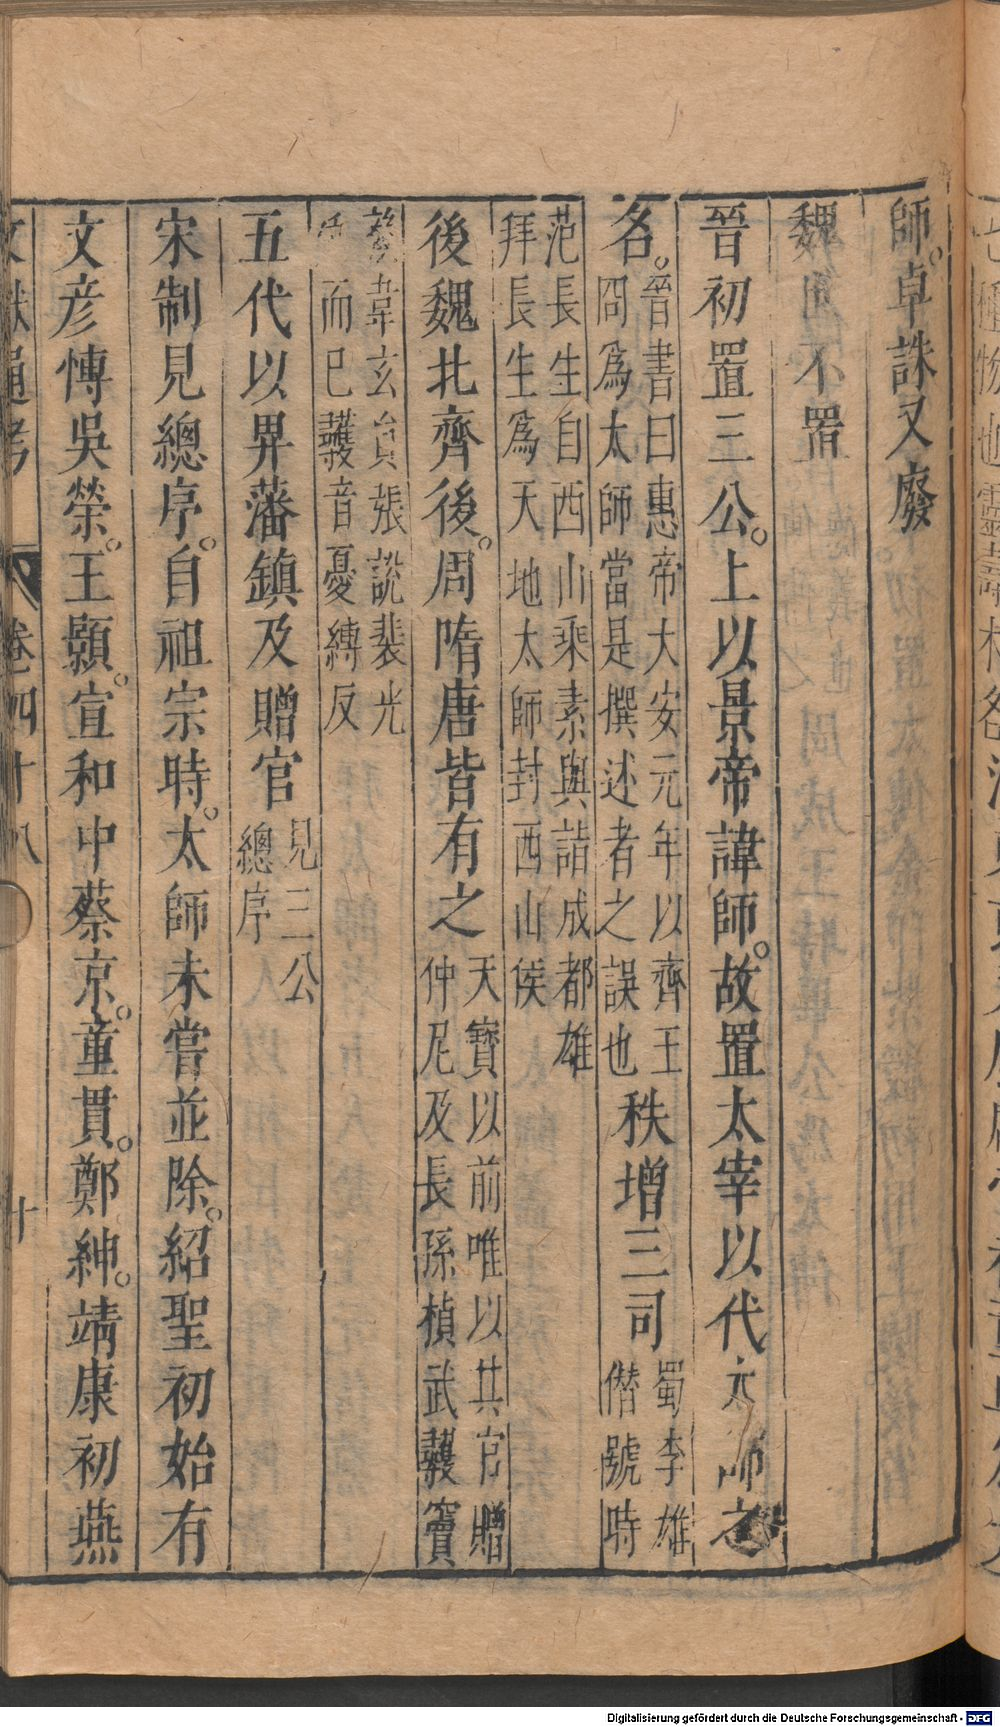 師卓誅又廢
魏初不置
晉初置三公上以景帝諱師故置太宰以代太師之
名晉書曰惠帝大安元年以齊王冏為太師當是撰述者之誤也秩增三司蜀李雄僭號時
范長生自西山乘素輿詣成都雄拜長生為天地太師封西山侯
後魏北齊後周隋唐皆有之天寶以前唯以其官贈仲尼及長孫楨武蒦竇
韋玄貞張說裴光而已蒦音憂縛反
五代以畀藩鎮及贈官見三公總序
宋制見總序自祖宗時太師未嘗並除紹聖初始有
文彥博吳榮王顥宣和中蔡京童貫鄭紳靖康初燕
文獻通考 卷四十八 十
Digitalisierung gefördert durch die Deutsche Forschungsgemeinschaft - DFG